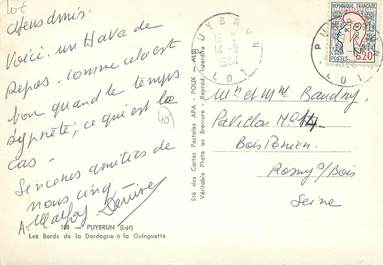 lot
chers amis.
Voici un Havre de
Repos. Comme cela est
bon quand le temps
s'y prête, ce qui est le
cas.
Sincères amitiés de
nous cinq
108 - PUYBRUN (Lot)
Les Bords de la Dordogne à la Guinguette
Sté des Cartes Postales APA - POUX - ALBI
Véritable Photo au Bromure - Reprod. interdite
PUYBRUN
14-8
1964
LOT
REPUBLIQUE FRANÇAISE
POSTES
0,20
PUYBRUN
LOT
Mr et Mme Baudry
Pavillon
Bois Perrier
Rosny s/Bois
Seine